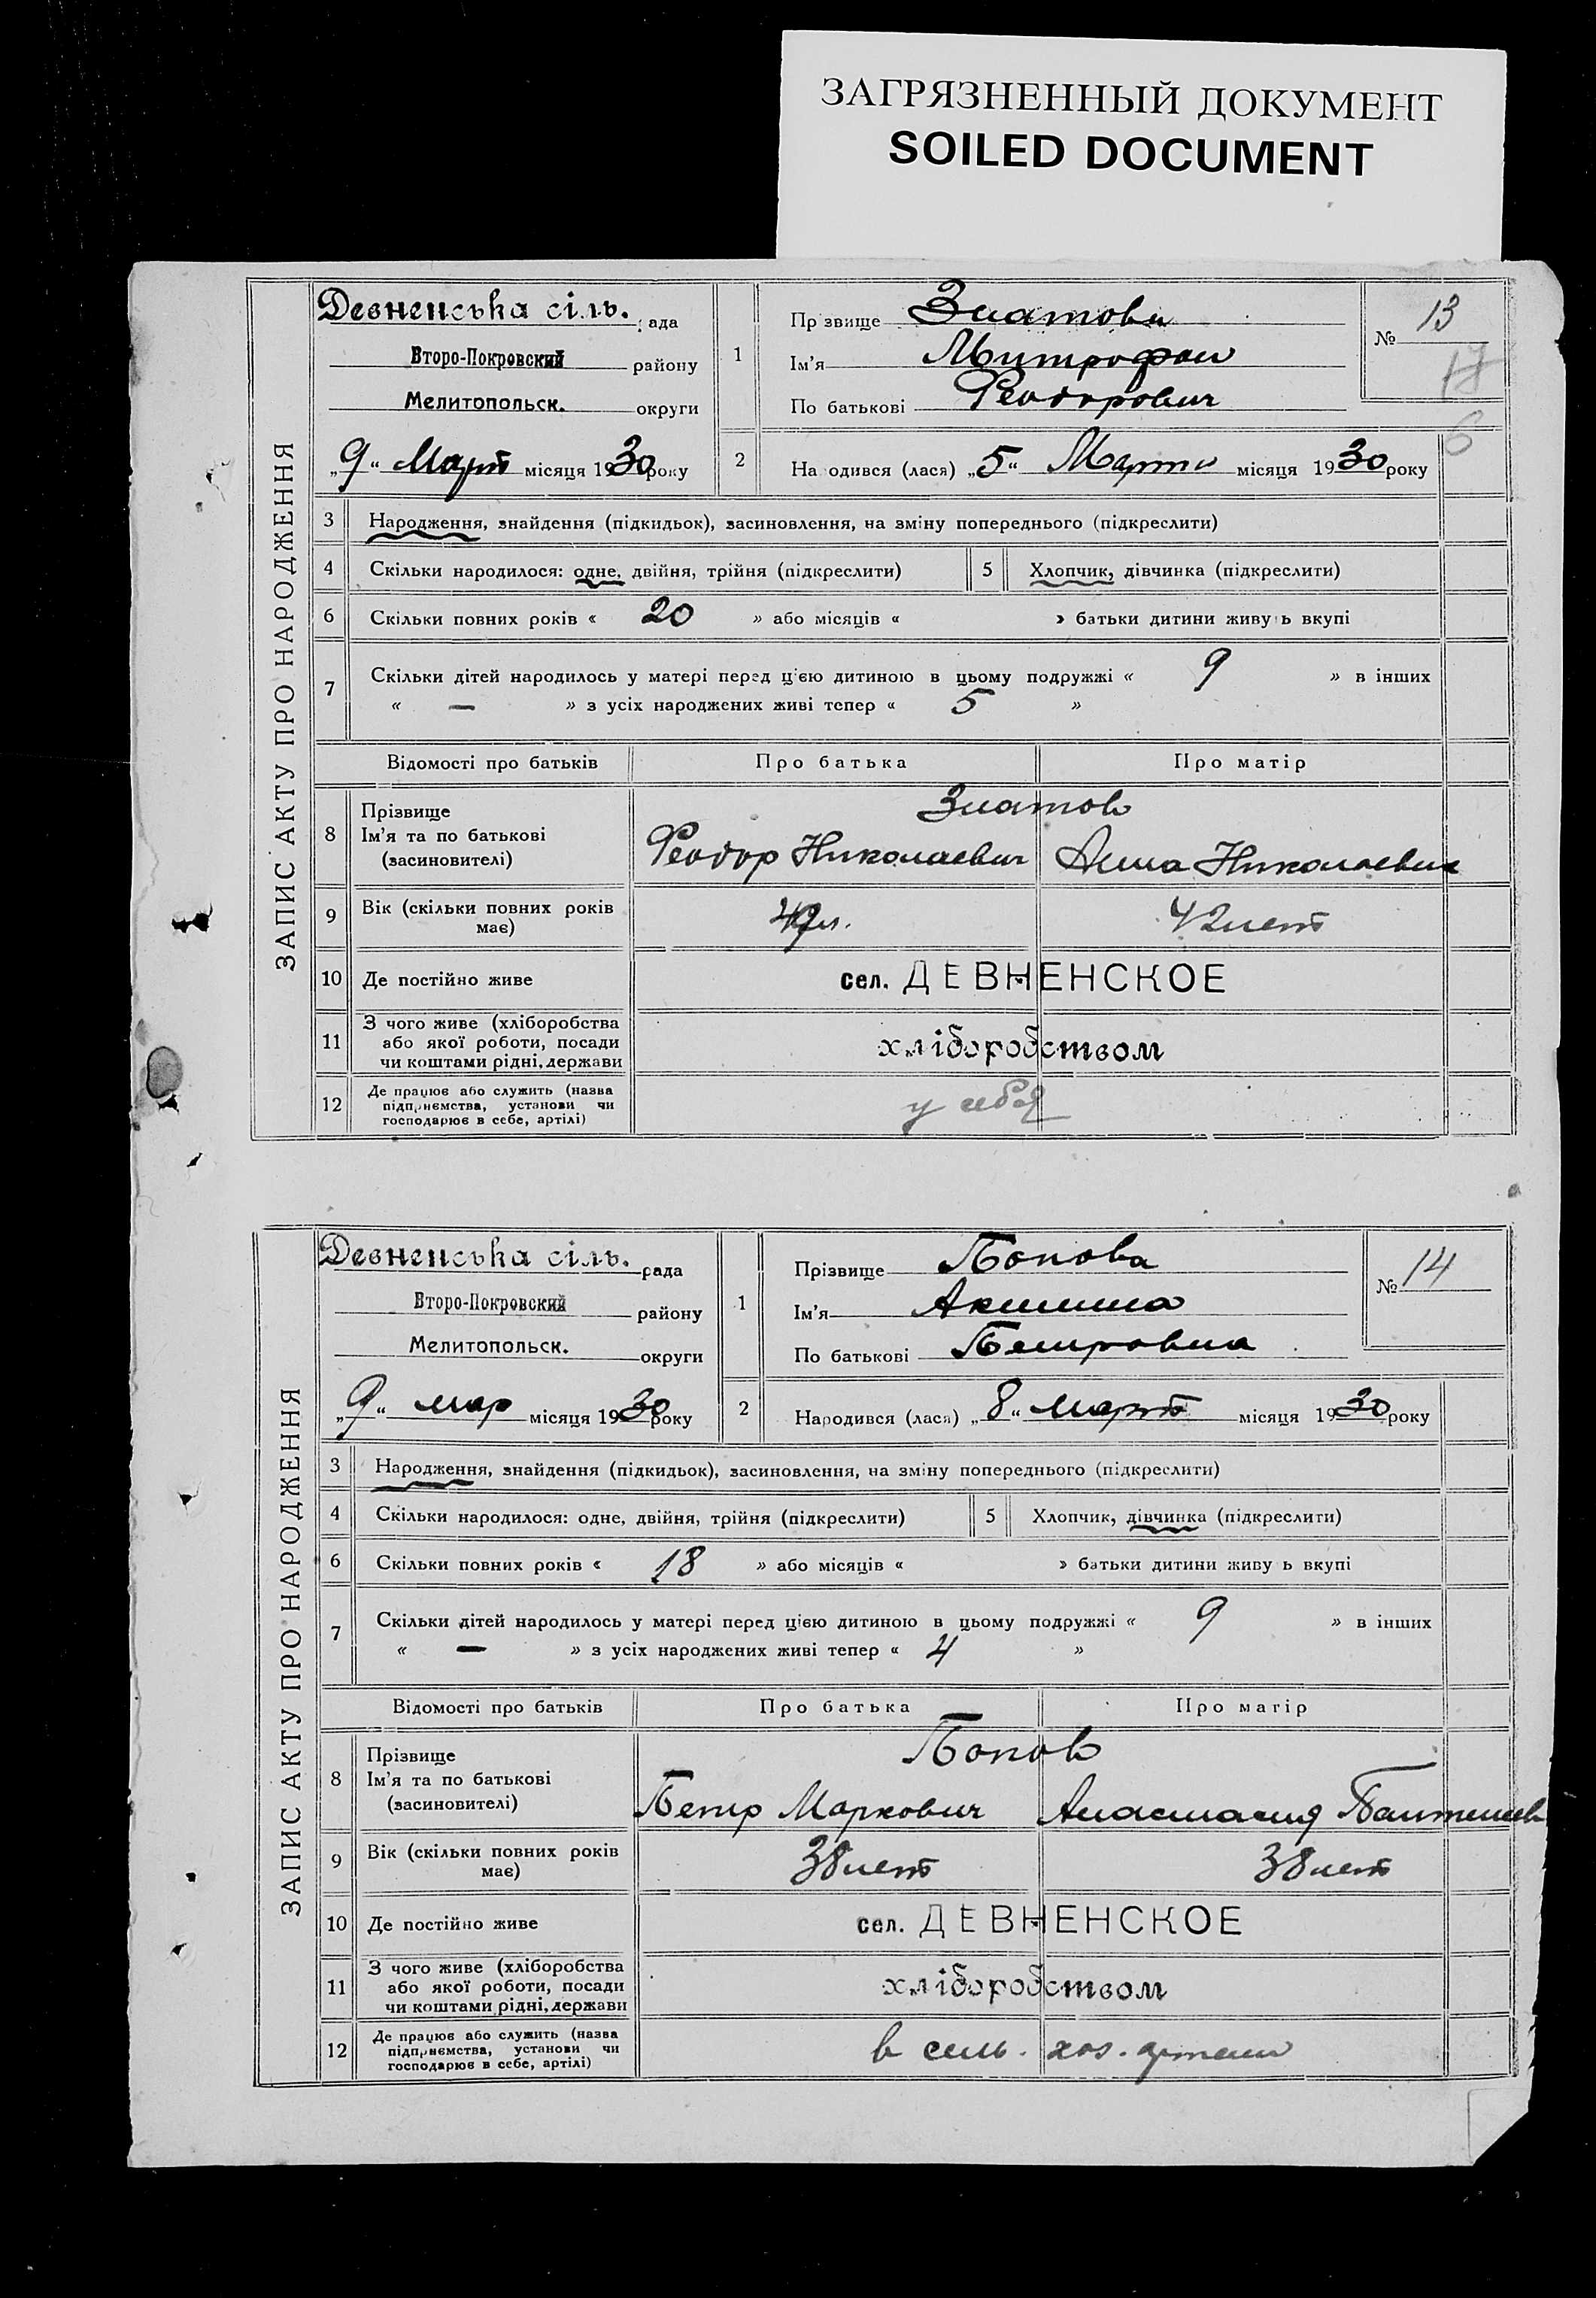 ЗАГРЯЗНЕННЫЙ ДОКУМЕНТ
SOILED DOCUMENT
ЗАПИС АКТУ ПРО НАРОДЖЕННЯ
Девненська сіль. рада
Второ-Покровский району
Мелитопольск. округи
„9“ Март місяця 1930 року
1
Прізвище Златови
Ім'я Митрофан
По батькові Феодорович
№ 13
17
6
2 Народився (лася) „5“ Марта місяця 1930 року
3 Народження, знайдення (підкидьок), засиновлення, на зміну попереднього (підкреслити)
4 Скільки народилося: одне, двійня, трійня (підкреслити) 5 Хлопчик, дівчинка (підкреслити)
6 Скільки повних років « 20 » або місяців « » батьки дитини живуть вкупі
7 Скільки дітей народилось у матері перед цією дитиною в цьому подружжі « 9 » в інших
« — » з усіх народжених живі тепер « 5 »
Відомості про батьків Про батька Про матір
8 Прізвище Златов
Ім'я та по батькові Феодор Николаевич Анна Николаевна
(засиновителі)
9 Вік (скільки повних років має) 42 лет
10 Де постійно живе сел. ДЕВНЕНСКОЕ
11 З чого живе (хліборобства
або якої роботи, посади хліборобством
чи коштами рідні, держави
12 Де працює або служить (назва
підприємства, установи чи у себя
господарює в себе, артілі)
ЗАПИС АКТУ ПРО НАРОДЖЕННЯ
Девненська сіль. рада
Второ-Покровский району
Мелитопольск. округи
„9“ мар місяця 1930 року
1
Прізвище Попова
Ім'я Акилина
По батькові Петровна
№ 14
2 Народився (лася) „8“ Март місяця 1930 року
3 Народження, знайдення (підкидьок), засиновлення, на зміну попереднього (підкреслити)
4 Скільки народилося: одне, двійня, трійня (підкреслити) 5 Хлопчик, дівчинка (підкреслити)
6 Скільки повних років « 18 » або місяців « » батьки дитини живу ь вкупі
7 Скільки дітей народилось у матері перед цією дитиною в цьому подружжі « 9 » в інших
« — » з усіх народжених живі тепер « 4 »
Відомості про батьків Про батька Про матір
8 Прізвище Попов
Ім'я та по батькові Петр Маркович Анастасия Пантелеев
(засиновителі)
9 Вік (скільки повних років має) 38 лет 38 лет
10 Де постійно живе сел. ДЕВНЕНСКОЕ
11 З чого живе (хліборобства
або якої роботи, посади хліборобством
чи коштами рідні, держави
12 Де працює або служить (назва
підприємства, установи чи в сель. хоз. артели
господарює в себе, артілі)